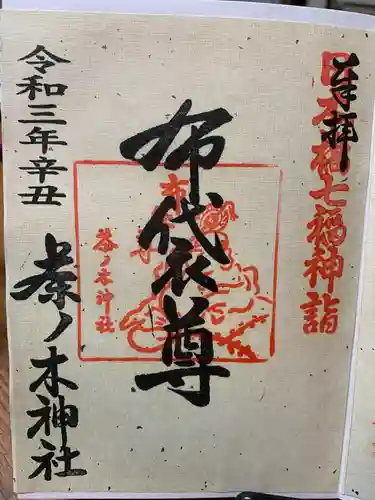 奉拝
日本橋七福神詣
布袋尊
茶ノ木神社
令和三年辛丑
茶ノ木神社